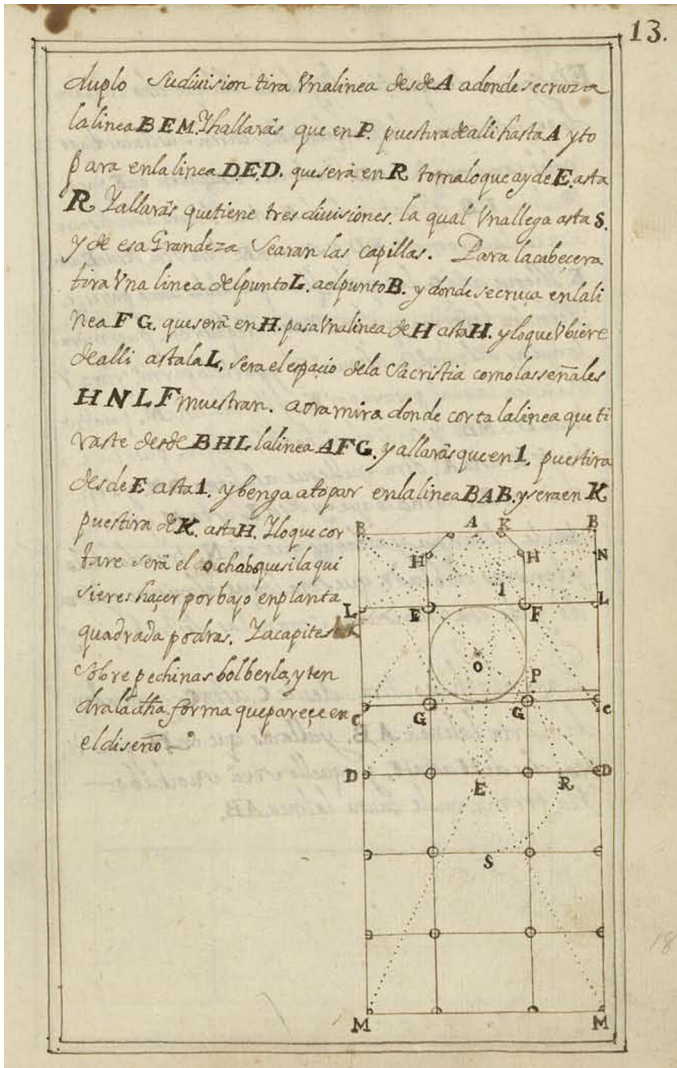 13.
duplo sudivision tira Vnalinea desde A adonde secruza
la linea B E M. Yhallarás que en P. pues tira de alli hasta A yto
para en la linea D.E.D. que será en R tomaloque ay de E. asta
R Yallarás quetiene tres divisiones. la qual Vnallega asta S.
y de esa Grandeza searan las capillas. Para la cabeçera
tira Vna linea delpunto L. a elpunto B. y donde secruça enlali
nea F G. que será en H. pasa Vnalinea de H asta H. y loque Vbiere
de alli asta la L, sera el espaçio dela Sacristia como las señales
H N L F muestran. aora mira donde corta lalinea que ti
raste desde B H L lalinea A F G. y allarás que en 1. pues tira
desde E asta 1. y benga atopar en la linea B A B. y sera en K
pues tira de K. asta H. Yloque cor
tare será el ochabo que si la qui
sieres haçer por bajo en planta
quadrada podras. Yacapite
sobre pechinas bolberla, y ten
dra la dha forma que pareçe en
el diseño
B A K B
H H N
1
L E F L
O
P
C G G C
D E R D
S
M M
18